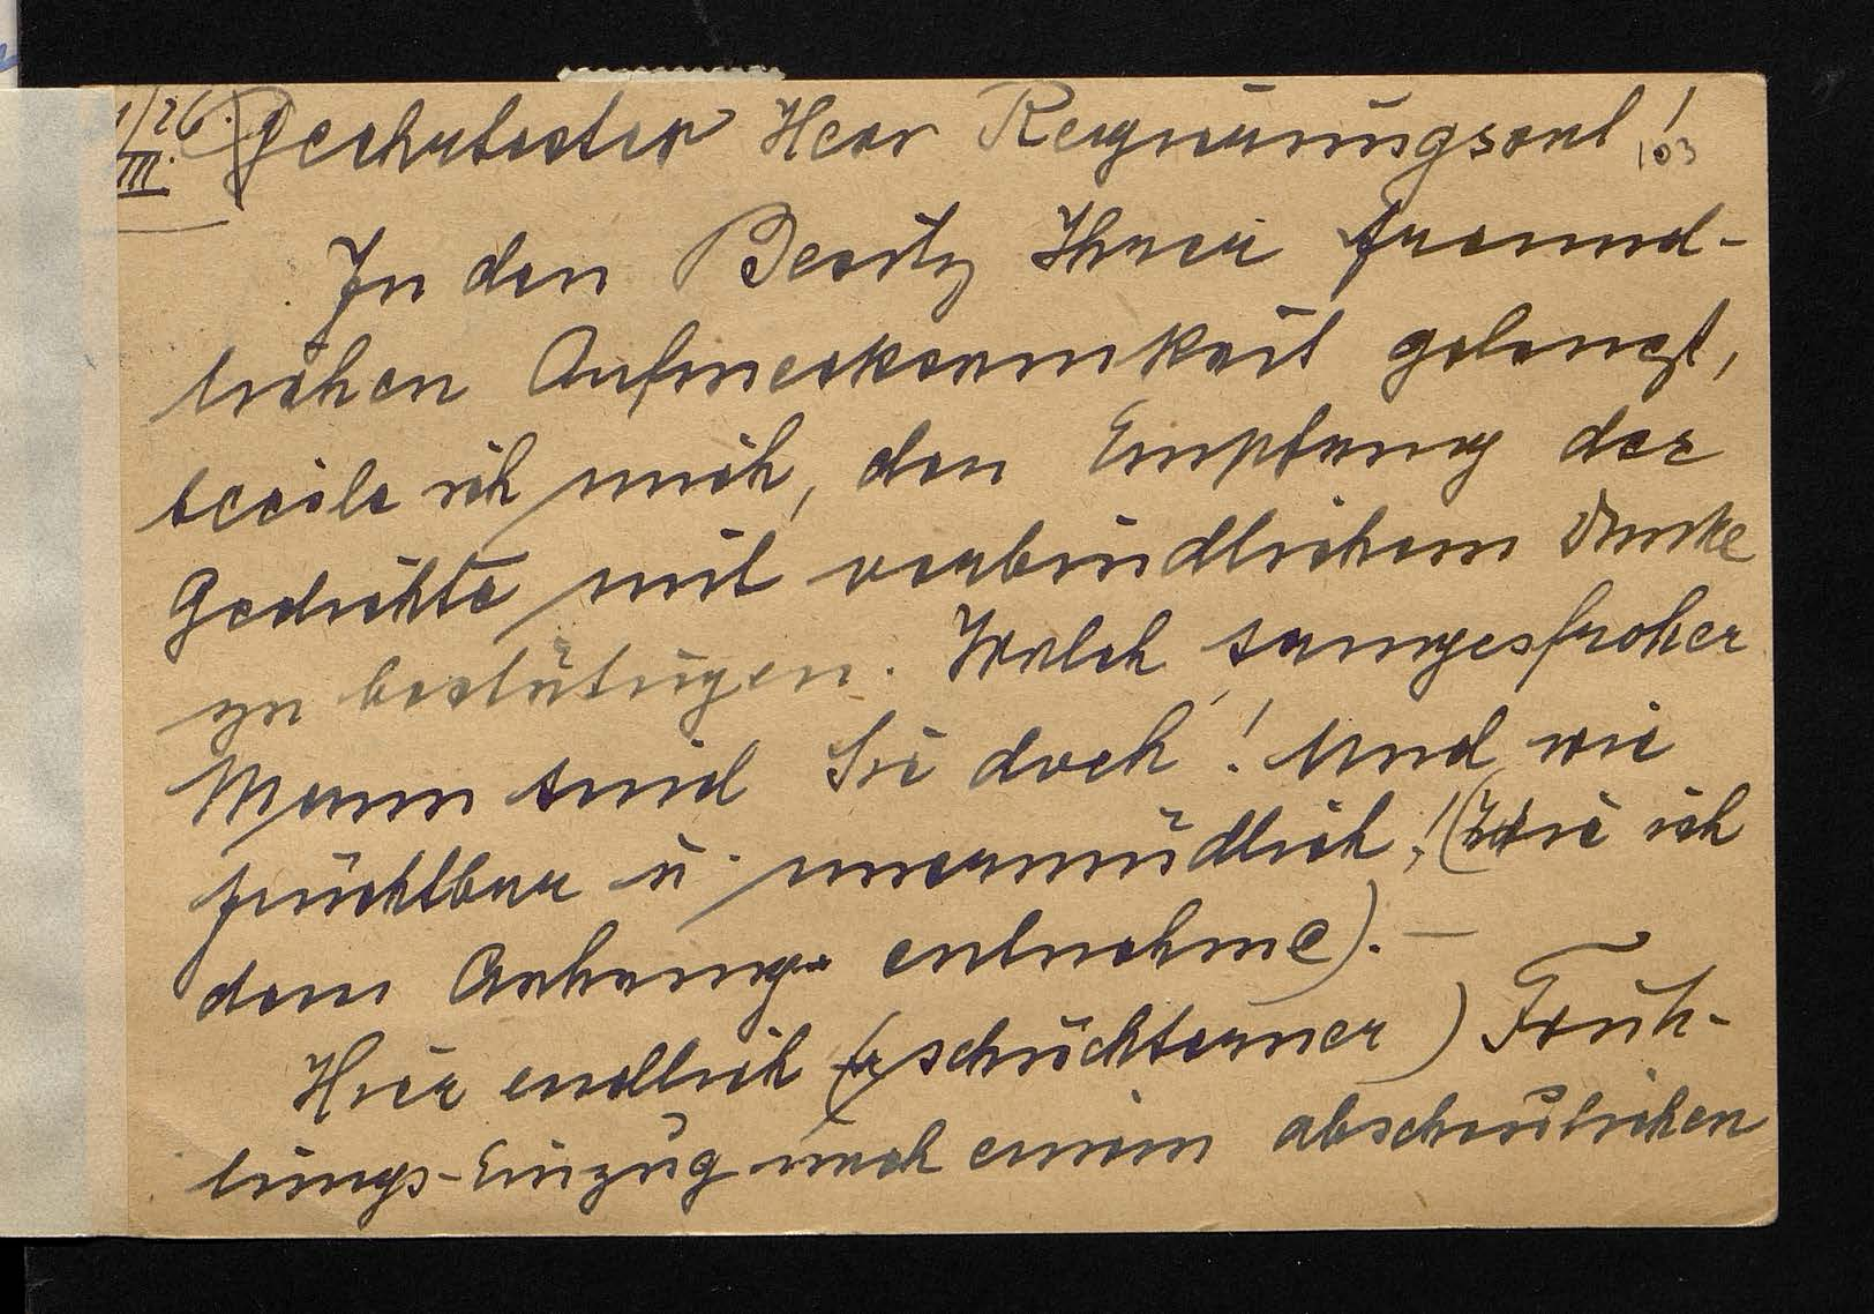 /26.
III.
Geehrtester Herr Regierungsrat!
103
In den Besitz Ihrer freund-
lichen Aufmerksamkeit gelangt,
beeile ich mich, den Empfang der
Gedichte mit verbindlichem Danke
zu bestätigen. Welch sangesfroher
Mann sind Sie doch! Und wie
fruchtbar u. unermüdlich! (Wie ich
dem Anhange entnehme). —
Hier endlich (schüchterner) Früh-
lings-Einzug nach einem abscheulichen